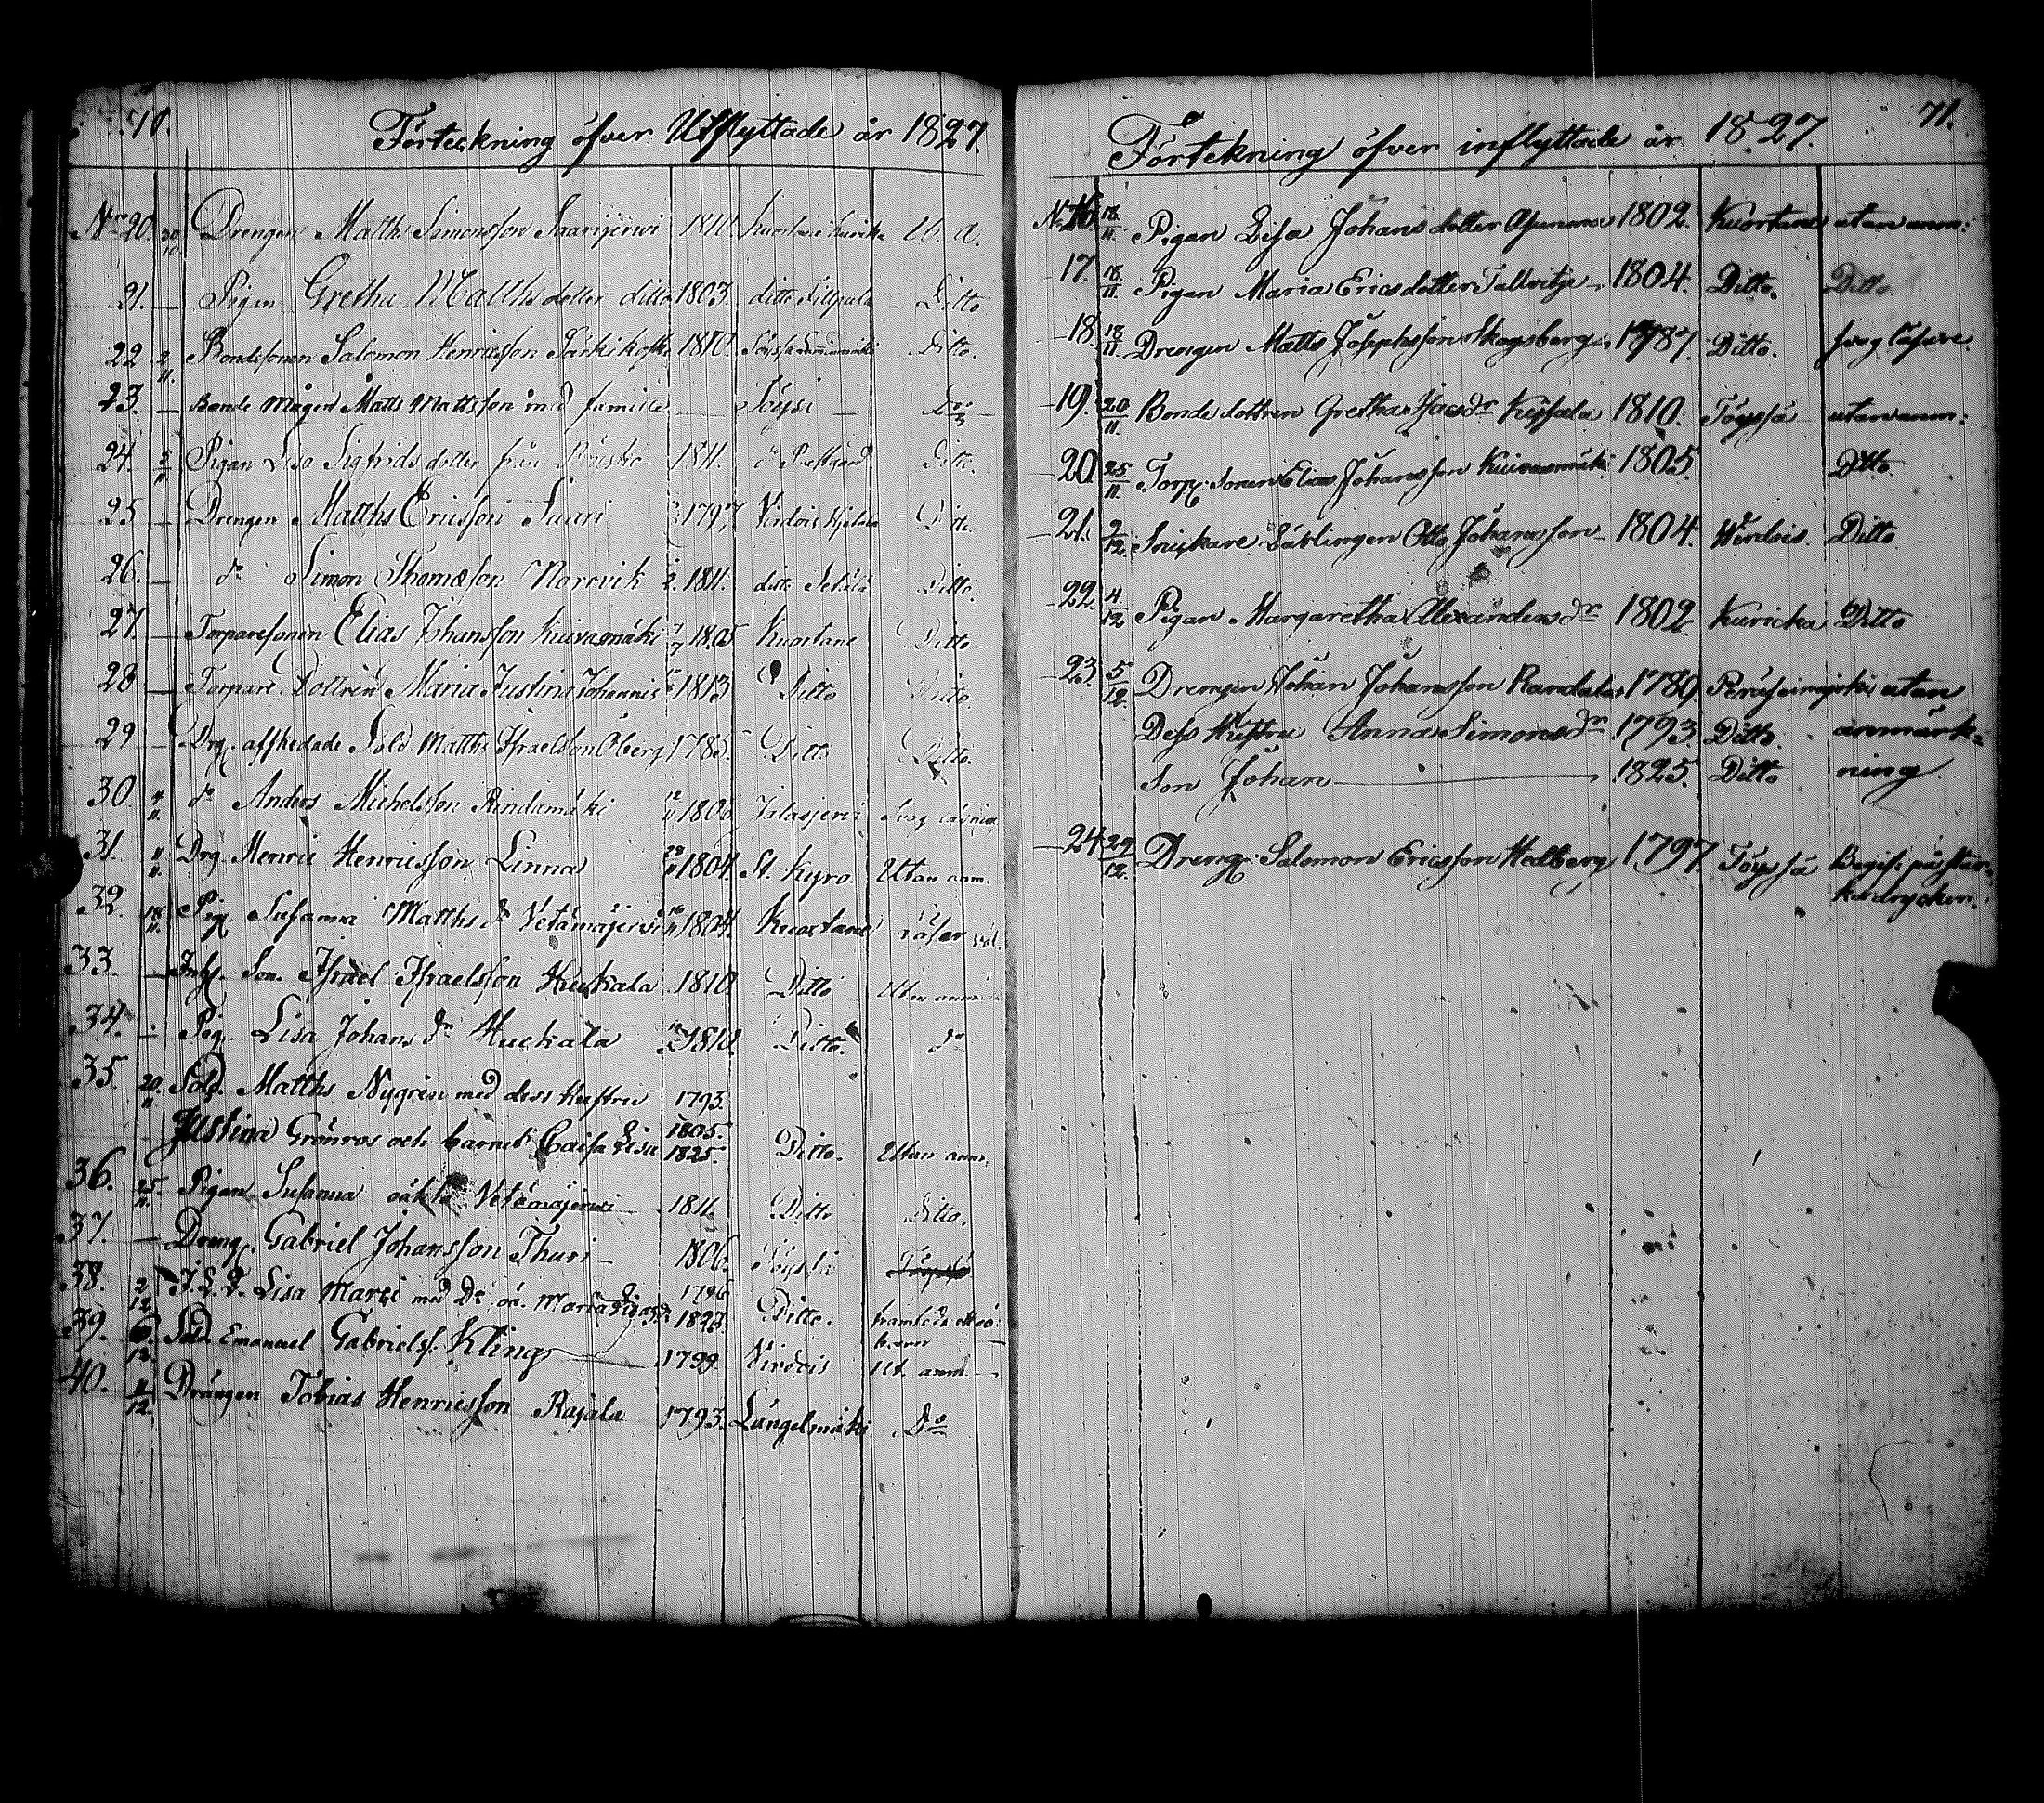 70.
Förteckning öfver Utflyttade år 1827.
Nro 20. 30/10 Drengen Matths Simonsson Saarijerwi 1810. Kuortane U. a.
21. — Pigan Gretha Matths dotter ditto 1803. ditto Ditto
22 2/11. Bondesonen Salomon Henricsson 1810. Töysä Ditto.
23. — Bonde Mågen Matts Mattsson med familie — Töysä — Do
24. Pigan Lisa Sigfrids dotter från 1811. do Prestgård Ditto.
25 — Drengen Matths Ericsson Saari 1797 Virdois Ditto.
26. — do Simon Thomasson Norrvik 1811. ditto Ditto.
27 — Torparesonen Elias Johansson Kuivasmäki 1805 Kuortane Ditto
28 — Torpare Dottren Maria Justina Johannis 1813 Ditto Ditto.
29 — Drg. afskedade Sold Matths Israelsson Öberg 1785. Ditto Ditto.
30. 4/11. do Anders Michelsson Rindamäki 1806 Jalasjervi Svag
31. 11/11. Drg. Henric Henricsson Linna 1804. St. Kyro. Utan anm.
32. 18/11. Pig. Susanna Matths dr Vetämäjerwi 1804. Kuortane läser väl.
33 — Inh. Son. Israel Israelsson Huckala 1810. Ditto Utan anm.
34. — Pig. Lisa Johans dr Huckala 1810. Ditto. do
35. 20/11 Sold. Matths Nygren med dess Hustru 1793.
Justina Grönros och barnet Caisa Lisa 1805. 1825. Ditto. Utan anm.
36. 25/11. Pigan Susanna oäkta Vetämäjerwi 1811. Ditto Ditto.
37. — Dreng. Gabriel Johansson Thuri — 1806. Töysä Töysä
38. 2/12 Lisa Marti med Dr oä. Maria 1796 1827. Ditto.
39. 6/12. Sold. Emanuel Gabrielss. Kling — 1799. Virdois Ut. anm. —
40. 11/12. Drängen Tobias Henricsson Rajala 1793. Längelmäki Do
71.
Förtekning öfver inflyttade år 1827.
No 16. 18/11. Pigan Lisa Johans dotter Asunmaa 1802. Kuortane utan anm:
17. 18/11. Pigan Maria Ericsdotter Tallvitje — 1804. Ditto. Ditto.
18. 18/11. Drengen Matts Josephsson Skogsberg 1787. Ditto. svag läsare.
19. 20/11. Bonde dottren Gretha Isacs dr 1810. Töysä utan anm:
20. 25/11. Torp: Sonen Elias Johansson Kuivasmäki 1805. Ditto.
21. 2/12. Snickare Lärlingen Otto Johansson — 1804. Wirdois. Ditto
22. 4/12 Pigan Margaretha Alexanders dr 1802. Kuricka Ditto
23. 5/12. Drengen Johan Johansson Randala 1789. Peräseinäjoki utan
Dess Hustru Anna Simons dr 1793. Ditto. anmärk=
Son Johan — 1825. Ditto ning.
24 29/12. Dreng: Salomon Ericsson Hedberg 1797. Töysä Begif: på star=
ka drycker.